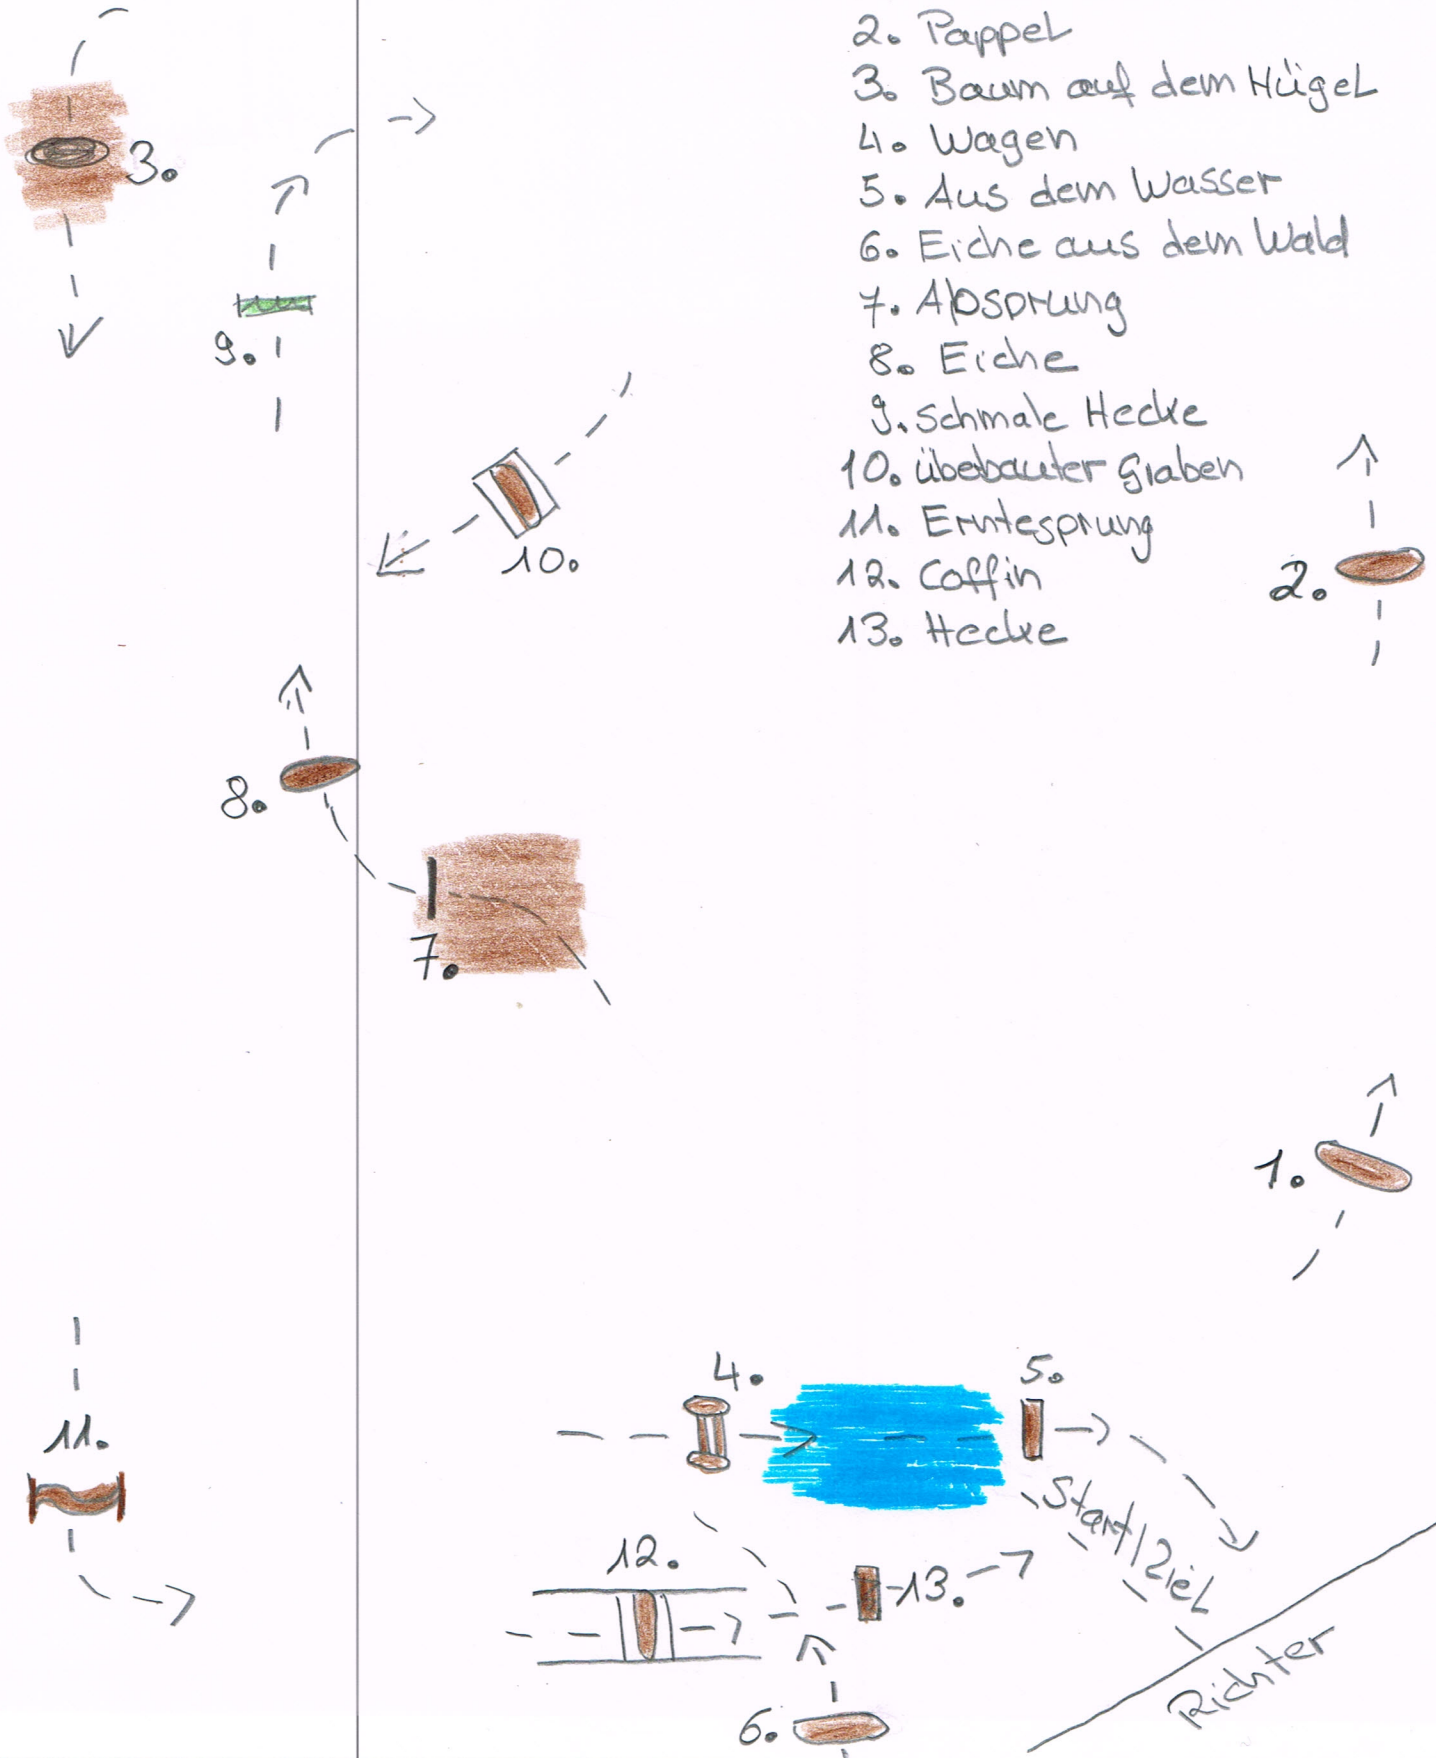 2. Pappel
3. Baum auf dem Hügel
4. Wagen
5. Aus dem Wasser
6. Eiche aus dem Wald
7. Absprung
8. Eiche
9. Schmale Hecke
10. übebauter Graben
11. Erntesprung
12. Coffin
13. Hecke
3.
9.
10.
2.
8.
7.
1.
4.
5.
11.
Start/Ziel
12.
13.
Richter
6.